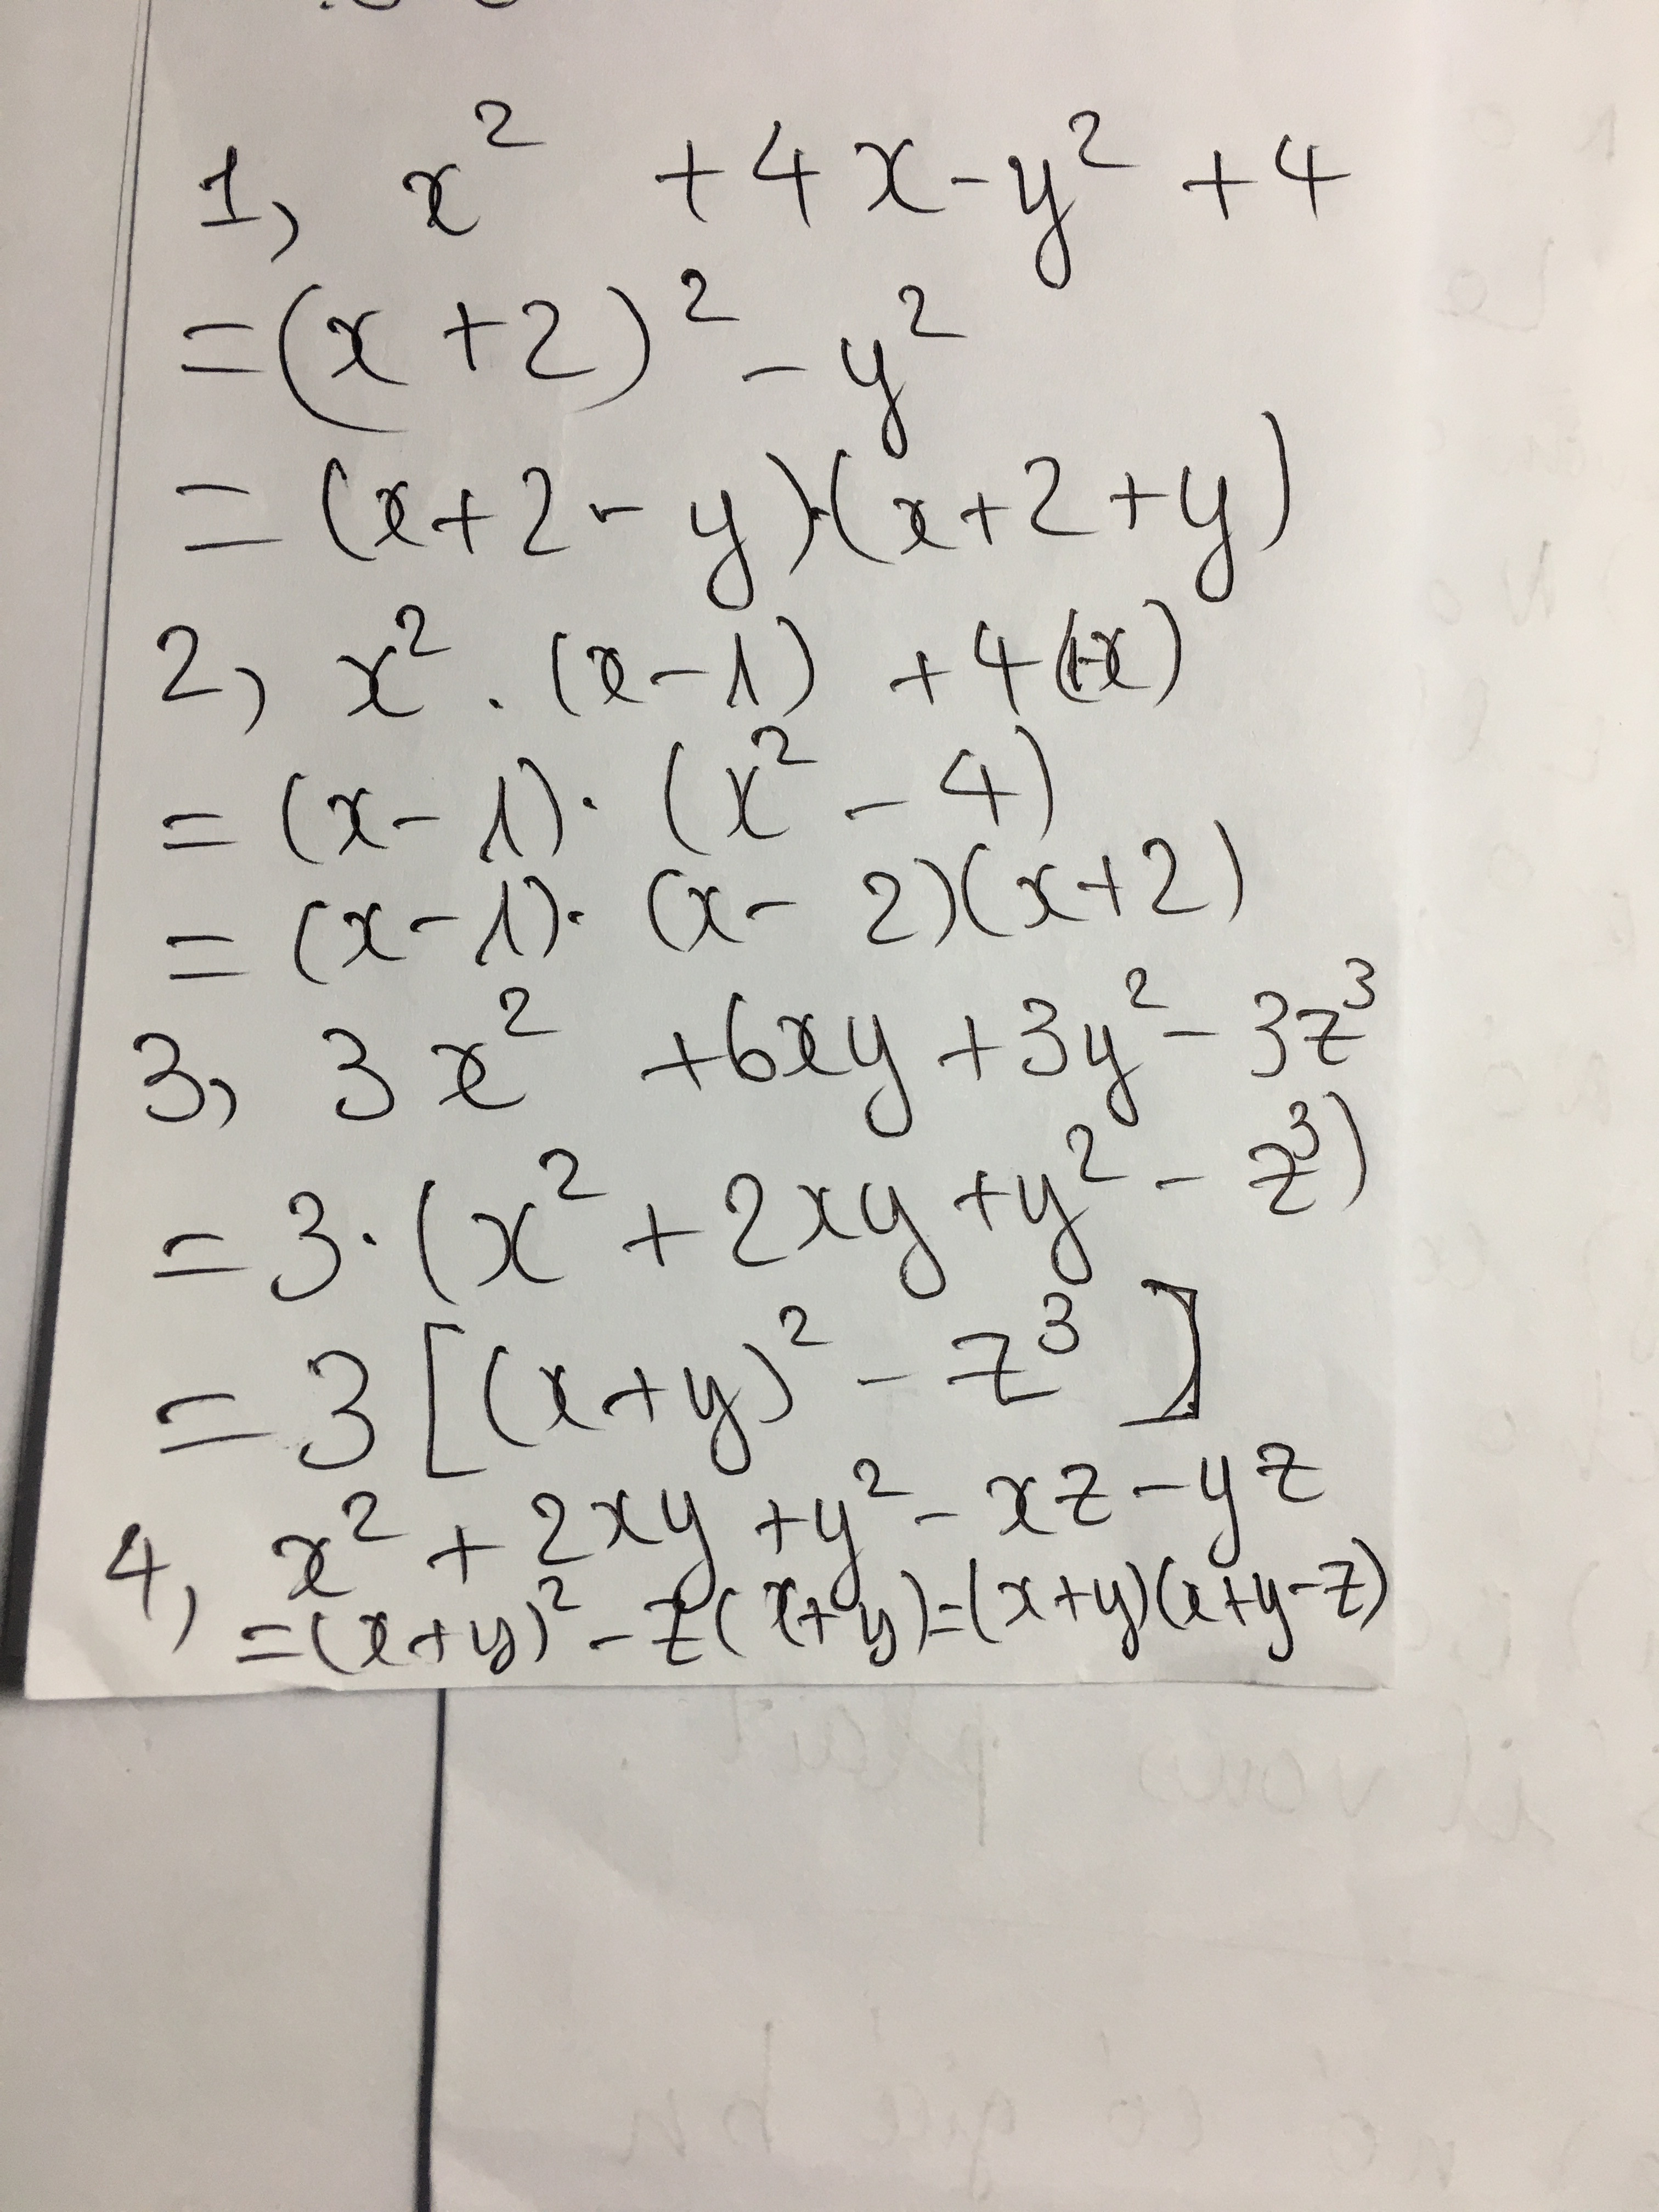 1, x² + 4x - y² + 4
= (x + 2)² - y²
= (x + 2 - y).(x + 2 + y)
2, x² . (x - 1) + 4(1-x)
= (x - 1). (x² - 4)
= (x - 1). (x - 2)(x + 2)
3, 3x² + 6xy + 3y² - 3z³
= 3. (x² + 2xy + y² - z³)
= 3 [(x + y)² - z³]
4, x² + 2xy + y² - xz - yz
= (x + y)² - z(x + y) = (x + y)(x + y - z)